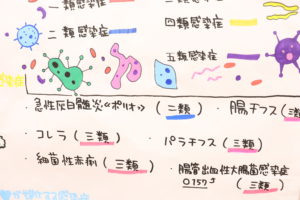 一類感染症
二類感染症
四類感染症
五類感染症
・急性灰白髄炎≪ポリオ≫(二類)
・腸チフス(三類
・コレラ(三類)
・パラチフス(三類)
・細菌性赤痢(三類)
・腸管出血性大腸菌感染症
O157 (三類)